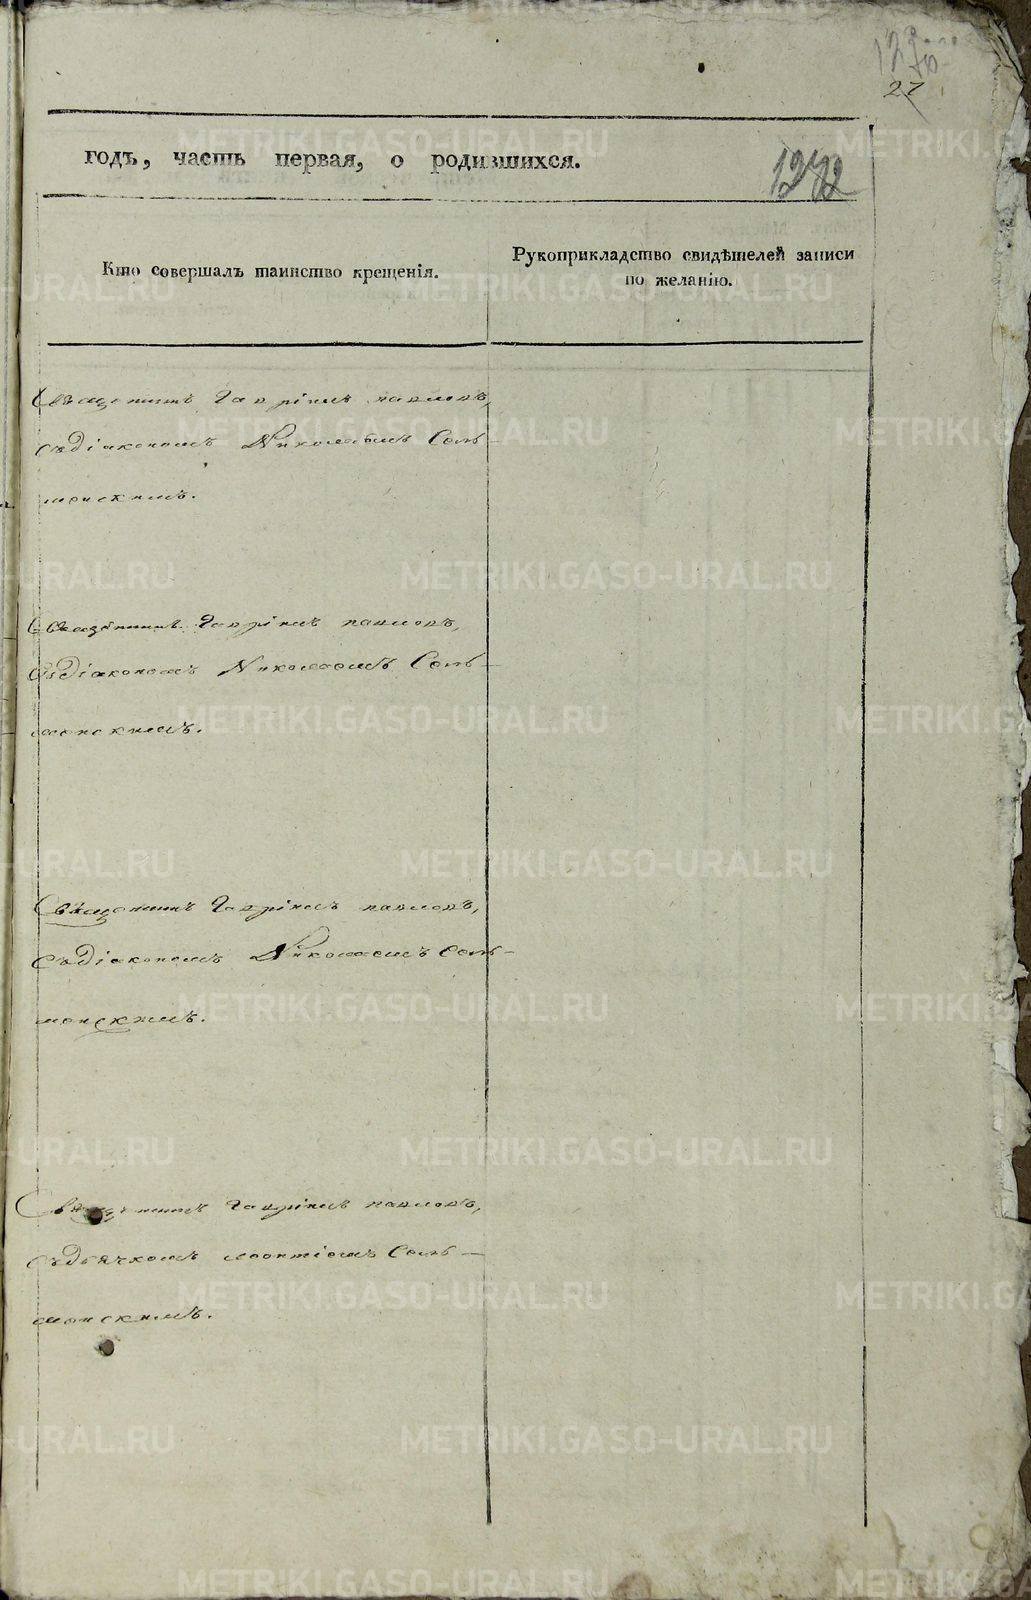 27
годъ, часть первая, о родившихся.
Кто совершалъ таинство крещенія.
Рукоприкладство свидѣтелей записи
по желанію.
Священникъ Гавріилъ Павловъ,
съ Діакономъ Николаемъ
Священникъ Гавріилъ Павловъ,
съ Діакономъ Николаемъ
Священникъ Гавріилъ Павловъ,
съ Діакономъ Николаемъ
Священникъ Гавріилъ Павловъ,
съ дьячкомъ
METRIKI.GASO-URAL.RU